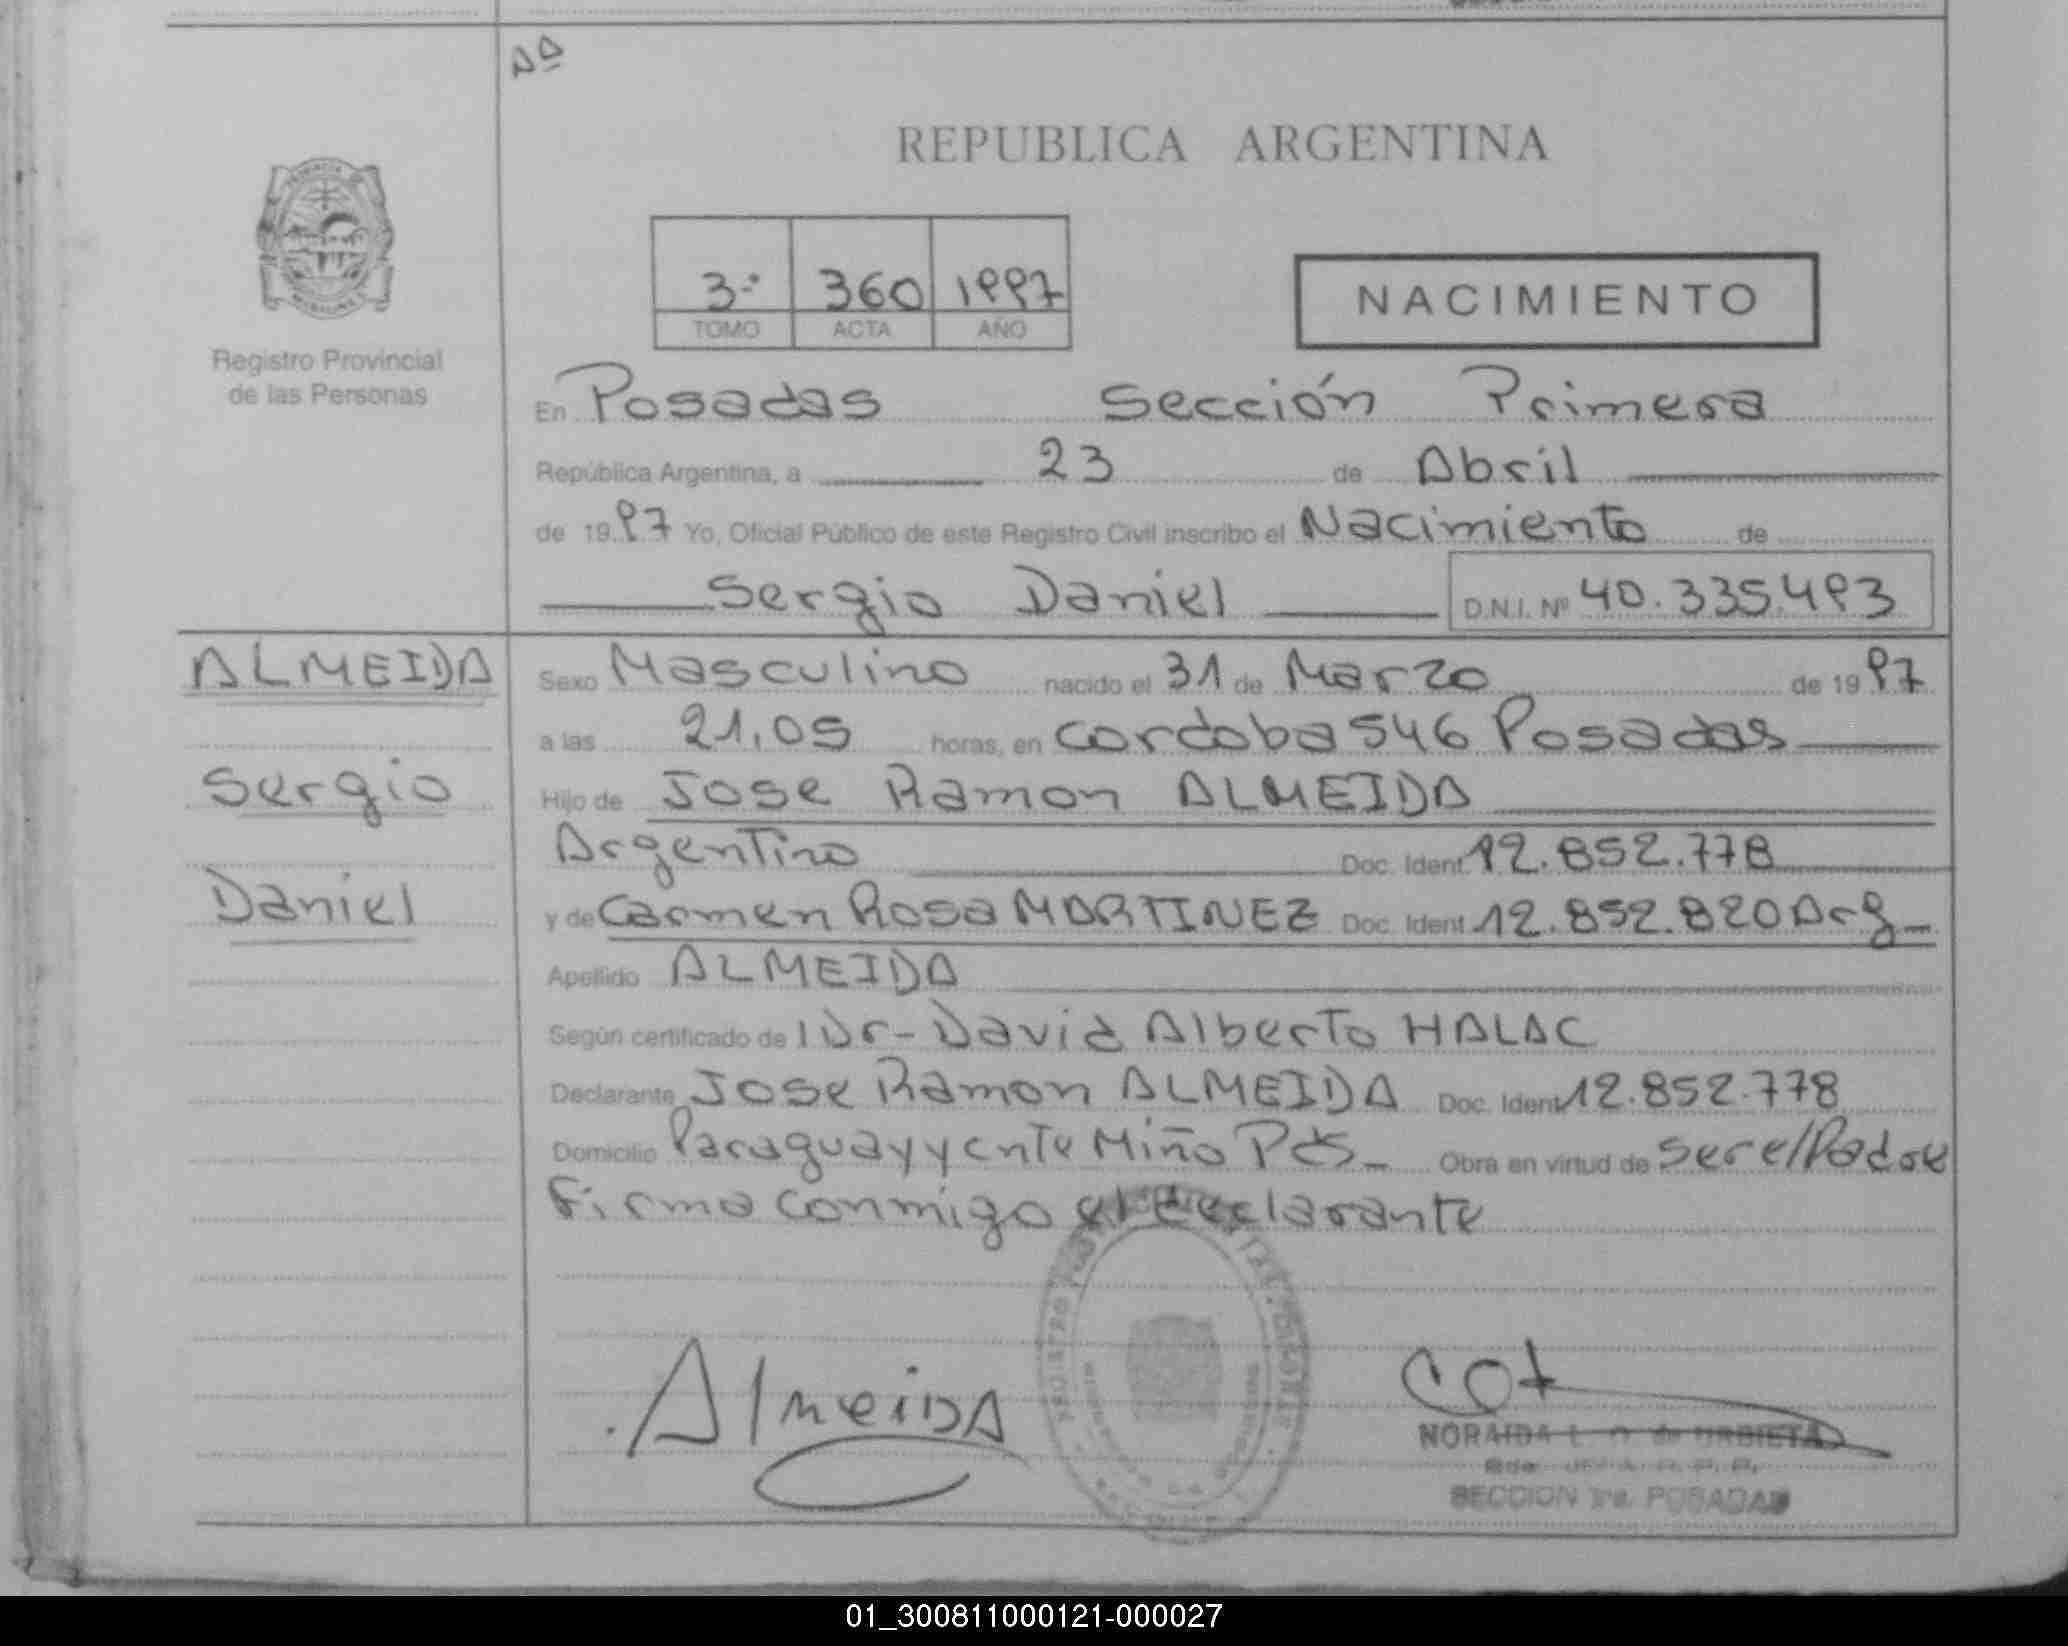 Nº
REPUBLICA ARGENTINA
3º 360 1997
TOMO ACTA AÑO
NACIMIENTO
Registro Provincial
de las Personas
En Posadas Sección Primera
República Argentina, a 23 de Abril
de 1997 Yo, Oficial Público de este Registro Civil inscribo el Nacimiento de
Sergio Daniel D.N.I. Nº 40.335.493
ALMEIDA
Sergio
Daniel
Sexo Masculino nacido el 31 de Marzo de 1997
a las 21,05 horas, en cordoba 546 Posadas
Hijo de Jose Ramon ALMEIDA
Argentino Doc. Ident. 12.852.778
y de Carmen Rosa MARTINEZ Doc. Ident. 12.852.820 Arg
Apellido ALMEIDA
Según certificado de Dr- David Alberto HALAC
Declarante Jose Ramon ALMEIDA Doc. Ident. 12.852.778
Domicilio Paraguay y cnte Miño Pds Obra en virtud de ser el Padre
Firma conmigo el declarante
AlmeiDA
NORAIDA L. O. de URBIETA
R. P. P.
SECCION 1ra. POSADAS
01_300811000121-000027